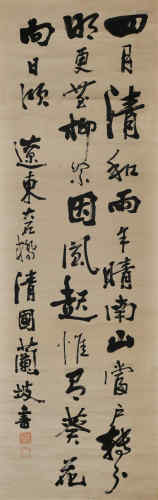 四月清和雨乍晴南山當戶轉分
明更無柳絮因風起惟有葵花
向日傾 遼東大石橋清國蘭坡書